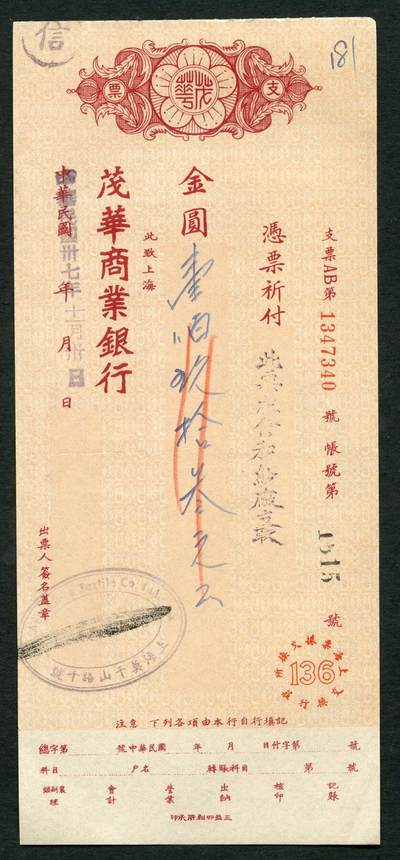 信
181
支票
茂華
支票AB第1347340號 帳號第1515號
憑票祈付
金圓壹佰玖拾叁元正
此致上海
茂華商業銀行
中華民國 年 月 日
中華民國卅七年十一月卅日
出票人簽名蓋章
Textile Co. Ltd.
上海英士山路十號
136
注意 下列各項由本行自行填記
總字第 號中華民國 年 月 日付字第 號
科目 戶名 轉賬科目 第 號
經副襄理 會計 營業 出納 核印 記賬